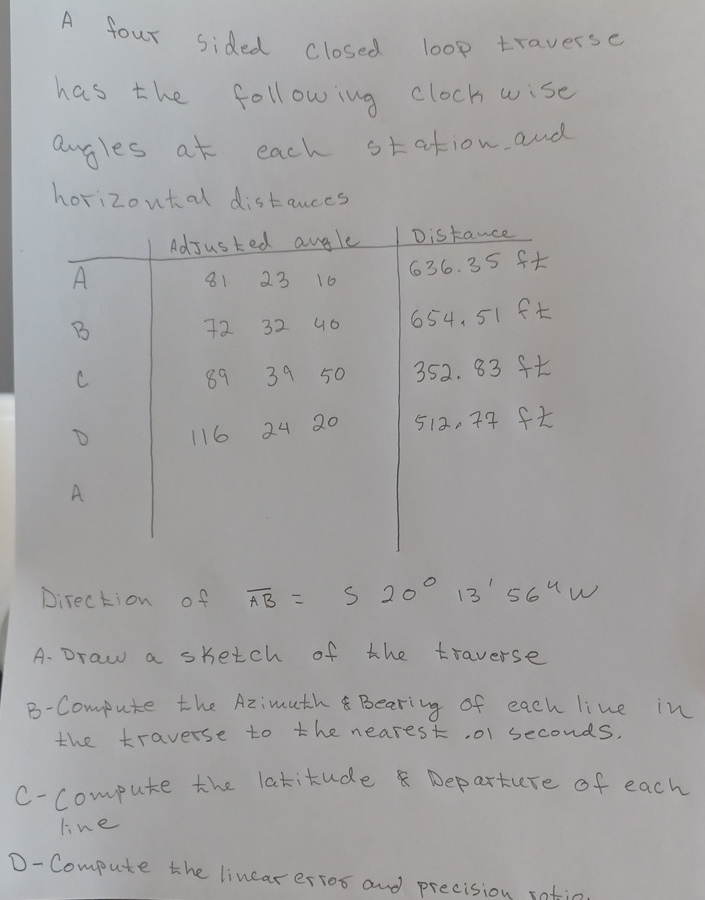 A four sided closed loop traverse
has the following clockwise
angles at each station and
horizontal distances
Adjusted angle Distance
A 81 23 10 636.35 ft
B 72 32 40 654.51 ft
C 89 39 50 352.83 ft
D 116 24 20 512.77 ft
A
Direction of AB = S 20° 13' 56" W
A- Draw a sketch of the traverse
B- Compute the Azimuth & Bearing of each line in
the traverse to the nearest .01 seconds.
C- Compute the latitude & Departure of each
line
D- Compute the linear error and precision ratio.